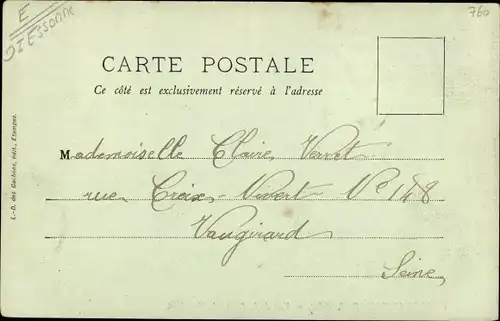 E
91 Essonne
760
CARTE POSTALE
Ce côté est exclusivement réservé à l'adresse
Mademoiselle Claire Verret
rue Croix-Nivert No 148
Vaugirard
Seine
L.-D. des Gachons, édit., Etampes.